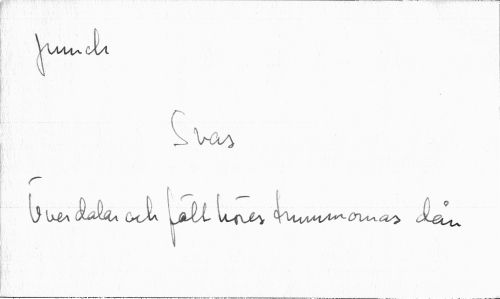 Svas
Över dalar och fält höres trummornas dån